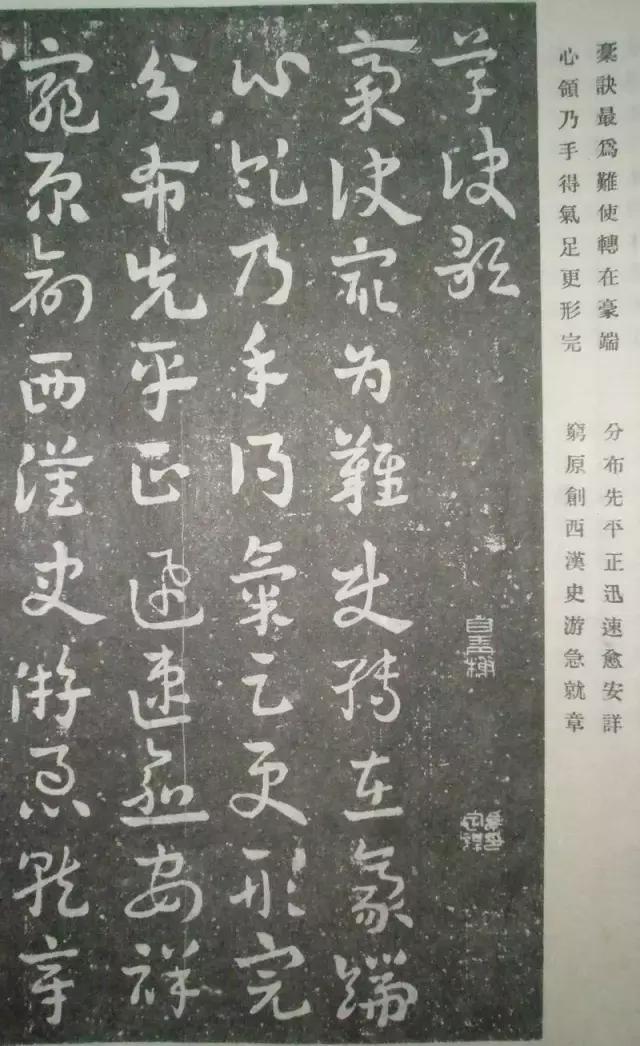 稾訣最爲難使轉在豪端
心領乃手得氣足更形完
分布先平正迅速愈安詳
窮原創西漢史游急就章
草訣歌
稾訣最为難使轉在豪端
心領乃手得氣足更形完
分布先平正迅速愈安祥
窮原創西漢史游急就章